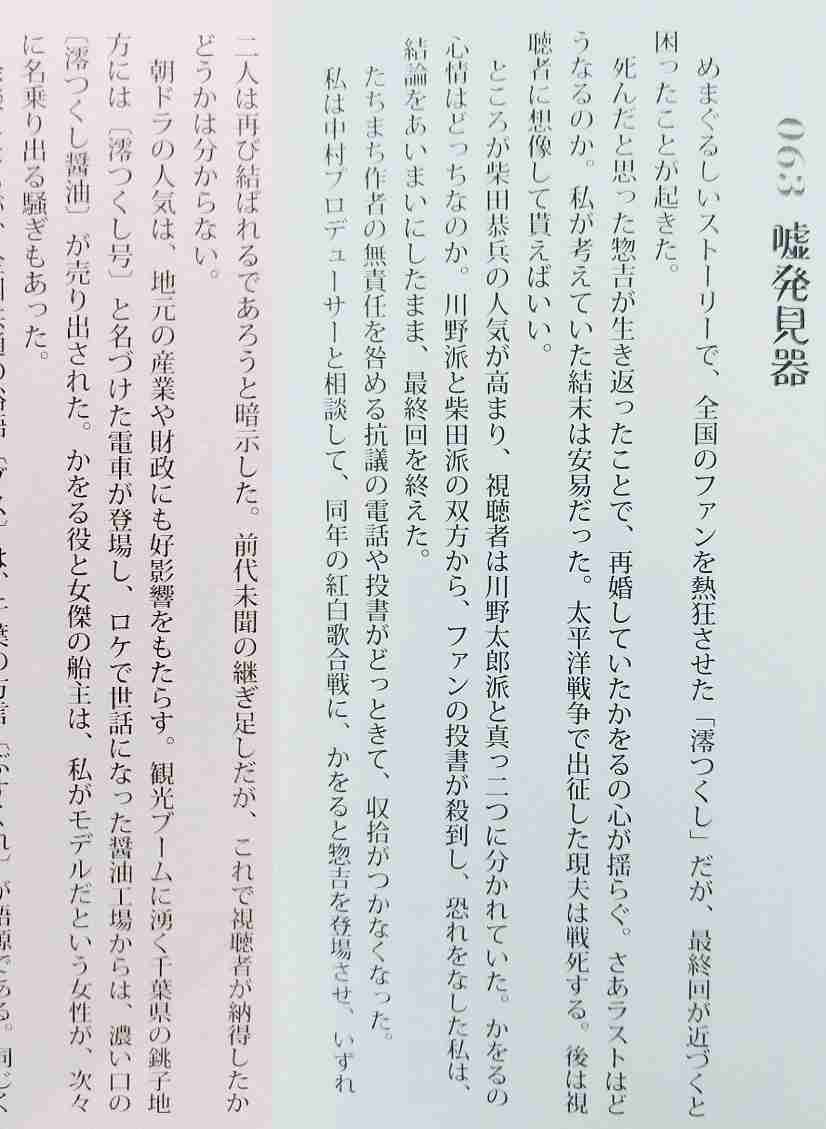 063 嘘発見器
めまぐるしいストーリーで、全国のファンを熱狂させた「澪つくし」だが、最終回が近づくと
困ったことが起きた。
死んだと思った惣吉が生き返ったことで、再婚していたかをるの心が揺らぐ。さあラストはど
うなるのか。私が考えていた結末は安易だった。太平洋戦争で出征した現夫は戦死する。後は視
聴者に想像して貰えばいい。
ところが柴田恭兵の人気が高まり、視聴者は川野太郎派と真っ二つに分かれていた。かをるの
心情はどっちなのか。川野派と柴田派の双方から、ファンの投書が殺到し、恐れをなした私は、
結論をあいまいにしたまま、最終回を終えた。
たちまち作者の無責任を咎める抗議の電話や投書がどっときて、収拾がつかなくなった。
私は中村プロデューサーと相談して、同年の紅白歌合戦に、かをると惣吉を登場させ、いずれ
二人は再び結ばれるであろうと暗示した。前代未聞の継ぎ足しだが、これで視聴者が納得したか
どうかは分からない。
朝ドラの人気は、地元の産業や財政にも好影響をもたらす。観光ブームに湧く千葉県の銚子地
方には〔澪つくし号〕と名づけた電車が登場し、ロケで世話になった醤油工場からは、濃い口の
〔澪つくし醤油〕が売り出された。かをる役と女傑の船主は、私がモデルだという女性が、次々
に名乗り出る騒ぎもあった。